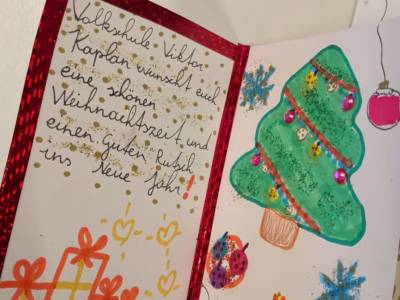 Volksschule Viktor
Kaplan wünscht euch
eine schöne
Weihnachtszeit und
einen guten Rutsch
ins Neue Jahr!